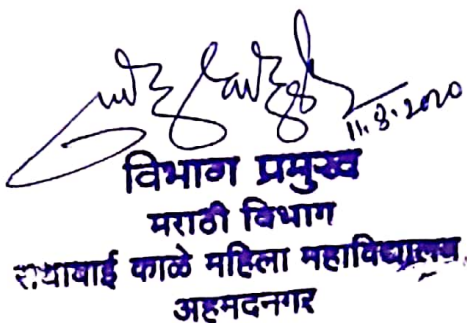 11.8.2020
विभाग प्रमुख
मराठी विभाग
राधाबाई काळे महिला महाविद्यालय
अहमदनगर